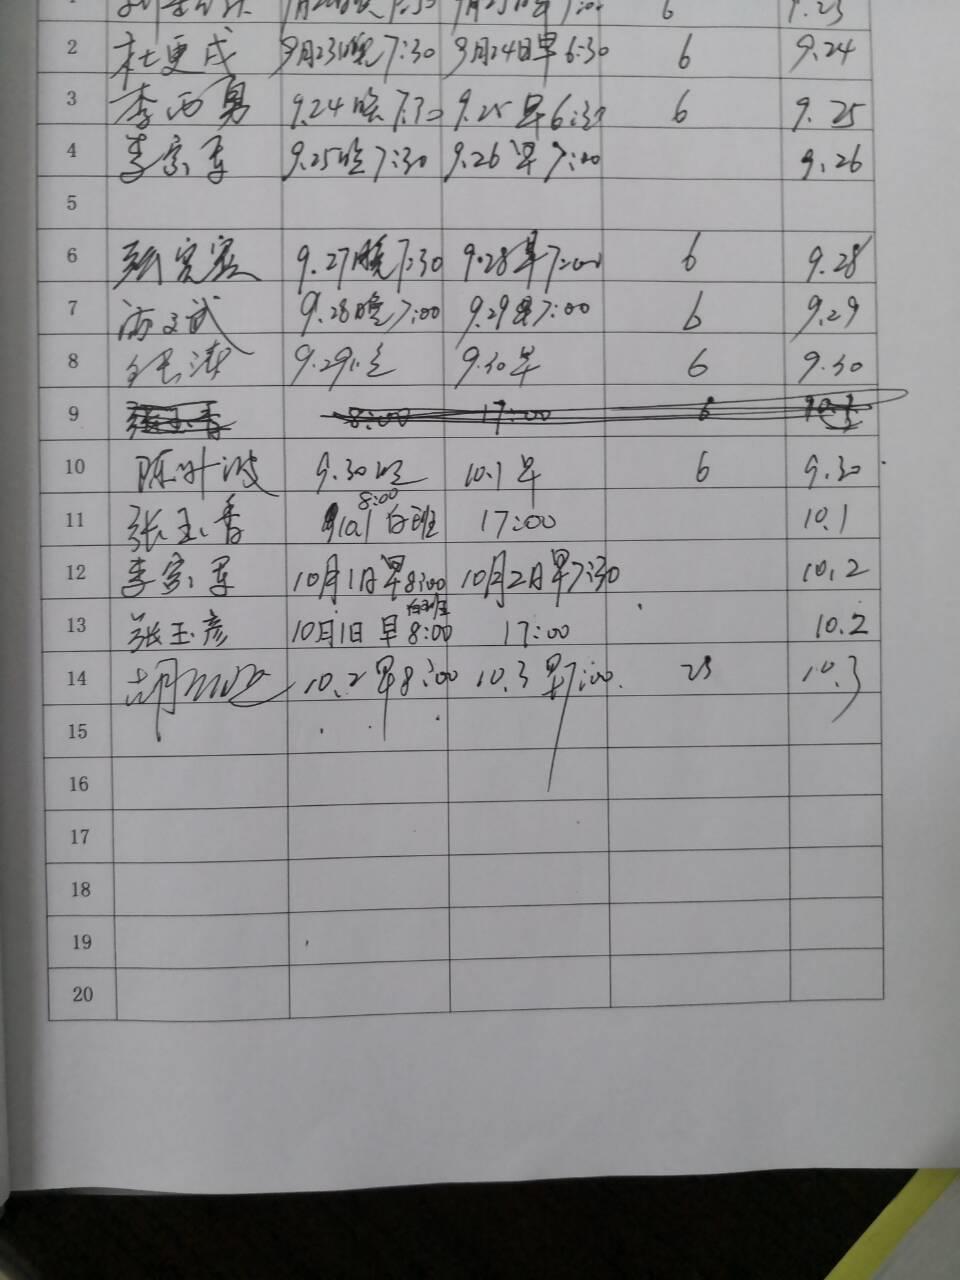 6 9.23
2 杜更戌 9月23日晚7:30 9月24日早6:30 6 9.24
3 李西勇 9.24晚7:30 9.25早6:30 6 9.25
4 李家军 9.25晚7:30 9.26早7:00 9.26
5
6 张 9.27晚7:30 9.28早7:00 6 9.28
7 9.28晚7:00 9.29早7:00 6 9.29
8 涛 9.29晚 9.30早 6 9.30
9 张玉香 8:00 17:00 6 10.1
10 陈叶波 9.30晚 10.1早 6 9.30
8:00
11 张玉香 10.1白班 17:00 10.1
12 李家军 10月1日早8:00 10月2日早7:30 10.2
白班
13 张玉彦 10月1日早8:00 17:00 10.2
14 胡 10.2早8:00 10.3早7:00. 23 10.3
15
16
17
18
19
20